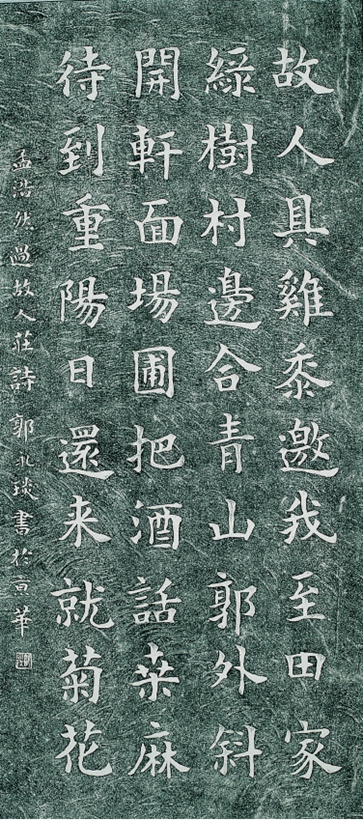 故人具雞黍邀我至田家
綠樹村邊合青山郭外斜
開軒面場圃把酒話桒麻
待到重陽日還来就菊花
孟浩然過故人莊詩 郭永琰書於京華